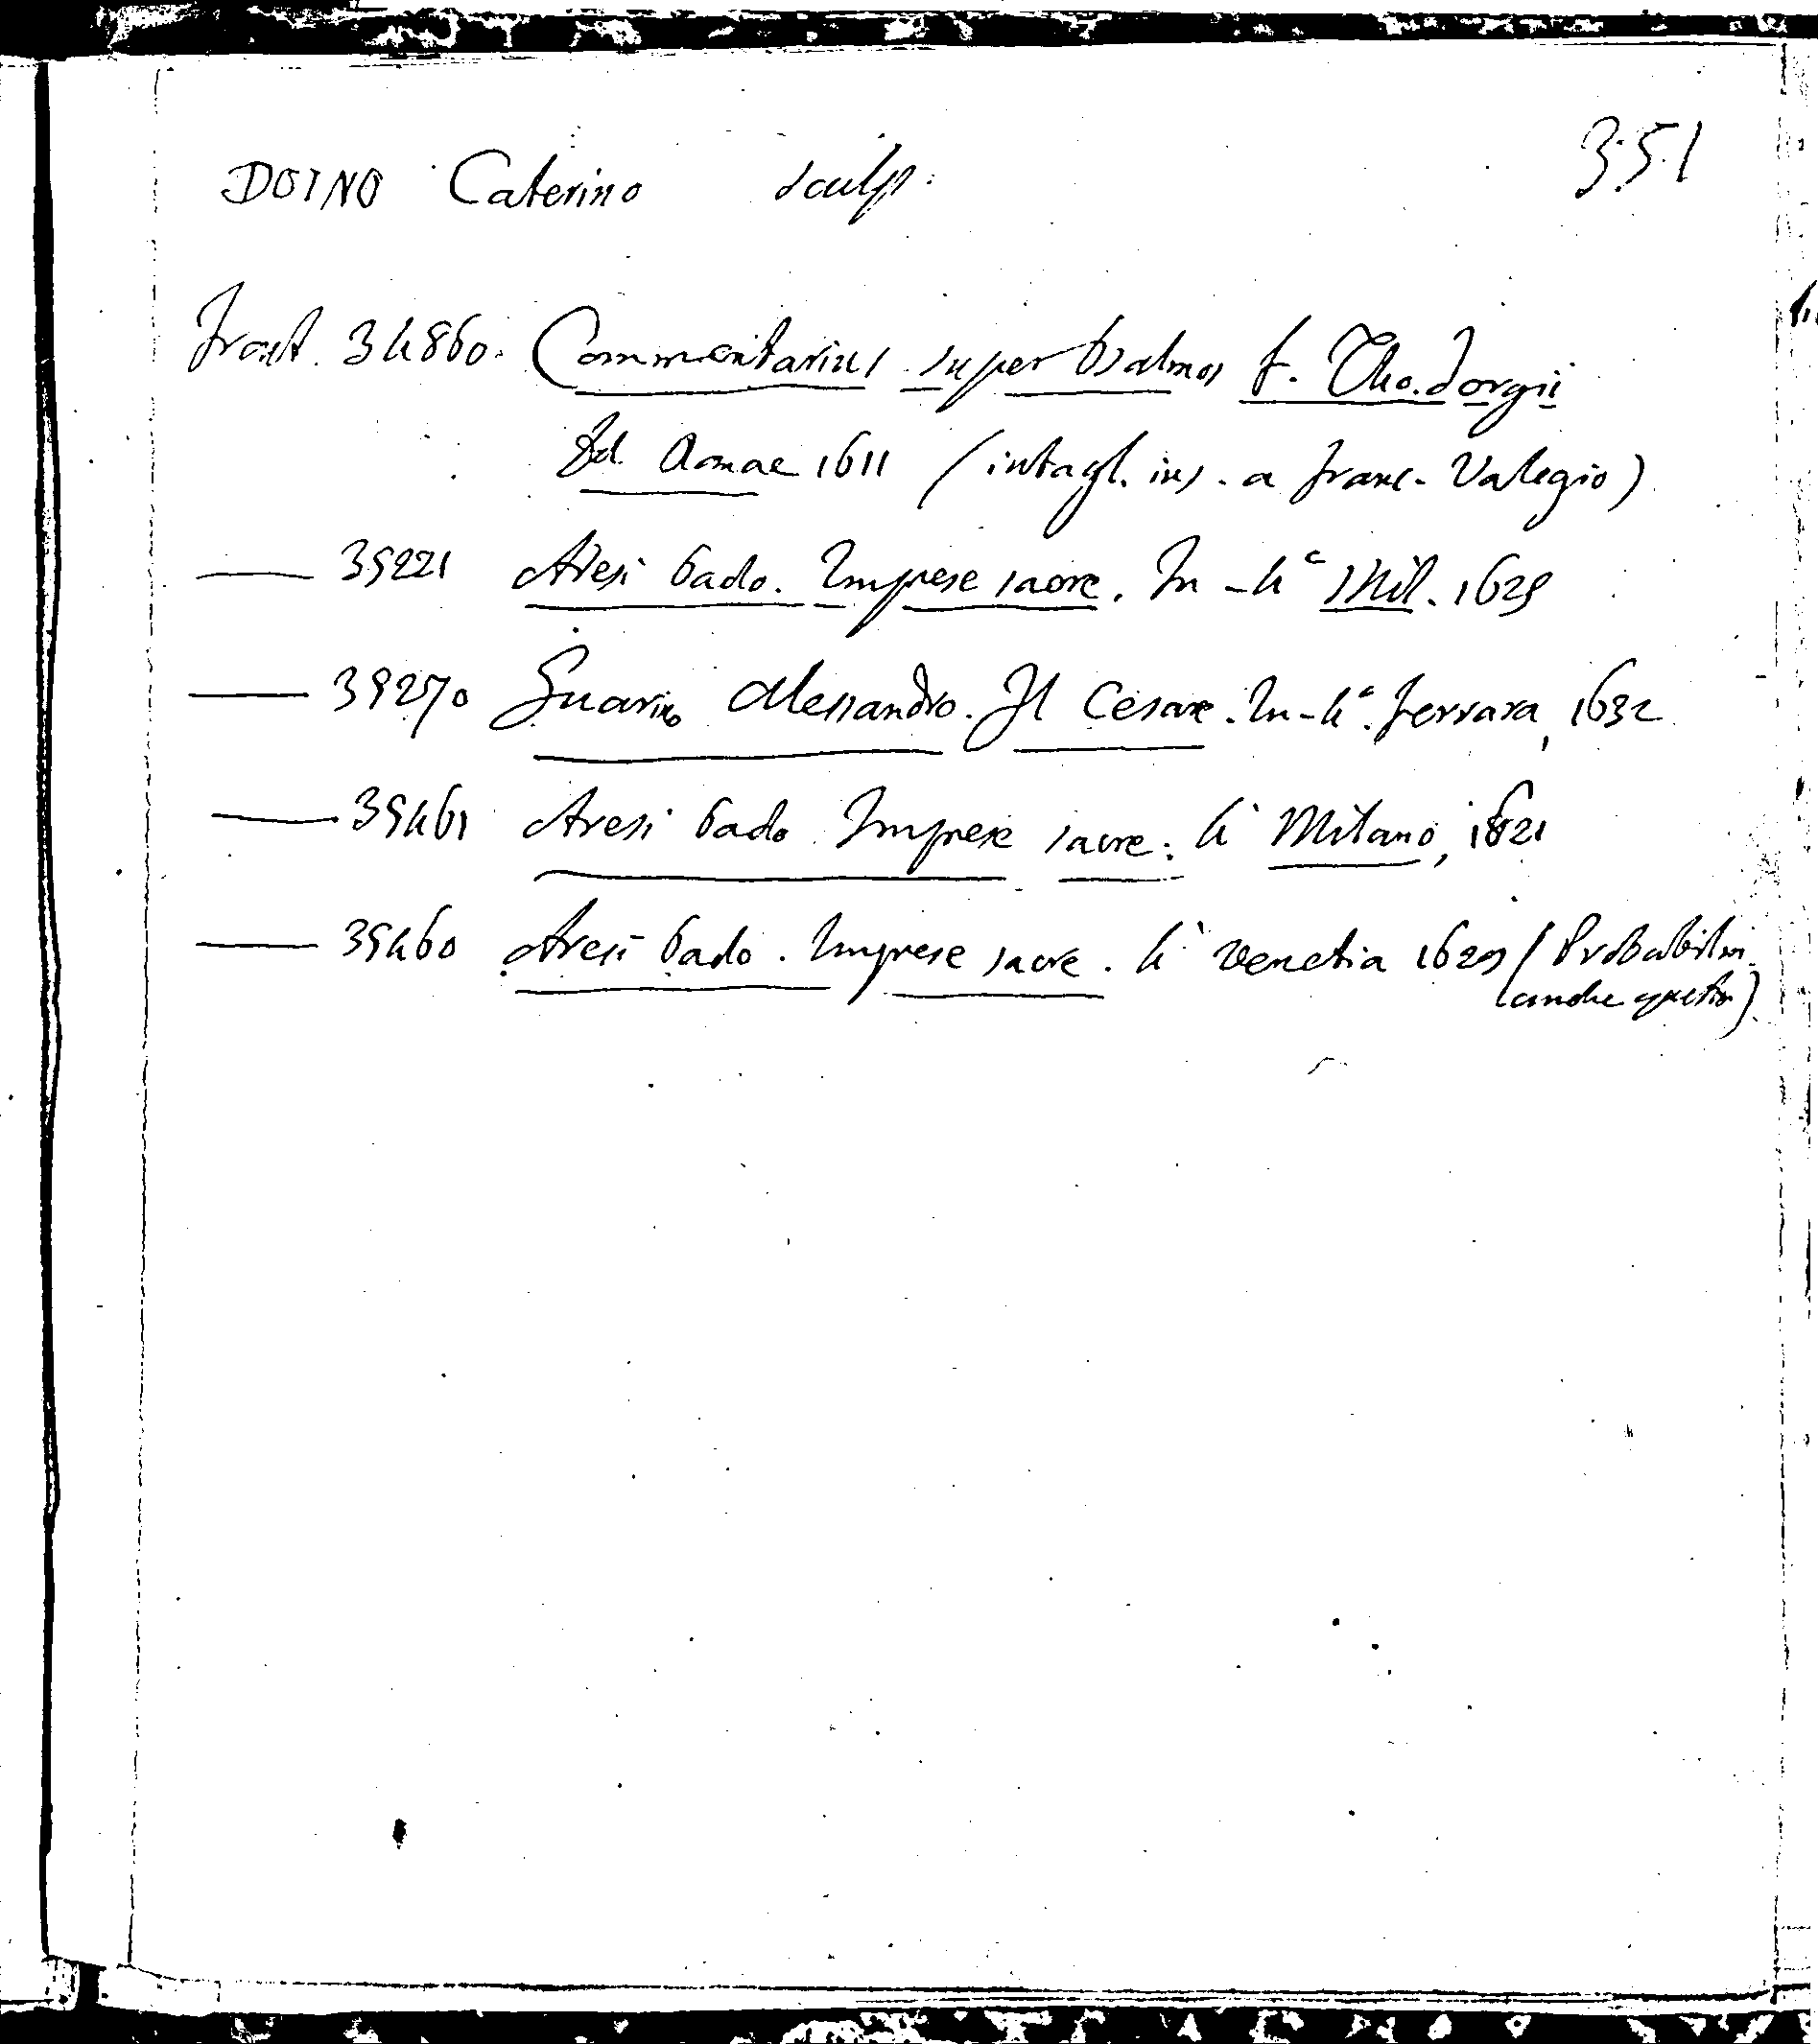 351
DOINO Caterino sculp.
Front. 34860. Commentarius super Psalmos f. Tho. Jorgii
Ed. Romae 1611 (intagl. ins. a Franc. Valegio)
— 39221 Aresi Paolo. Imprese sacre. In-4° Mil. 1625
— 39270 Guarino Alessandro. Il Cesare. In-4°. Ferrara, 1632
— 39461 Aresi Paolo Imprese sacre. 4° Milano, 1621
— 39460 Aresi Paolo. Imprese sacre. 4° Venetia 1629 (Probabilm.
anche questo)